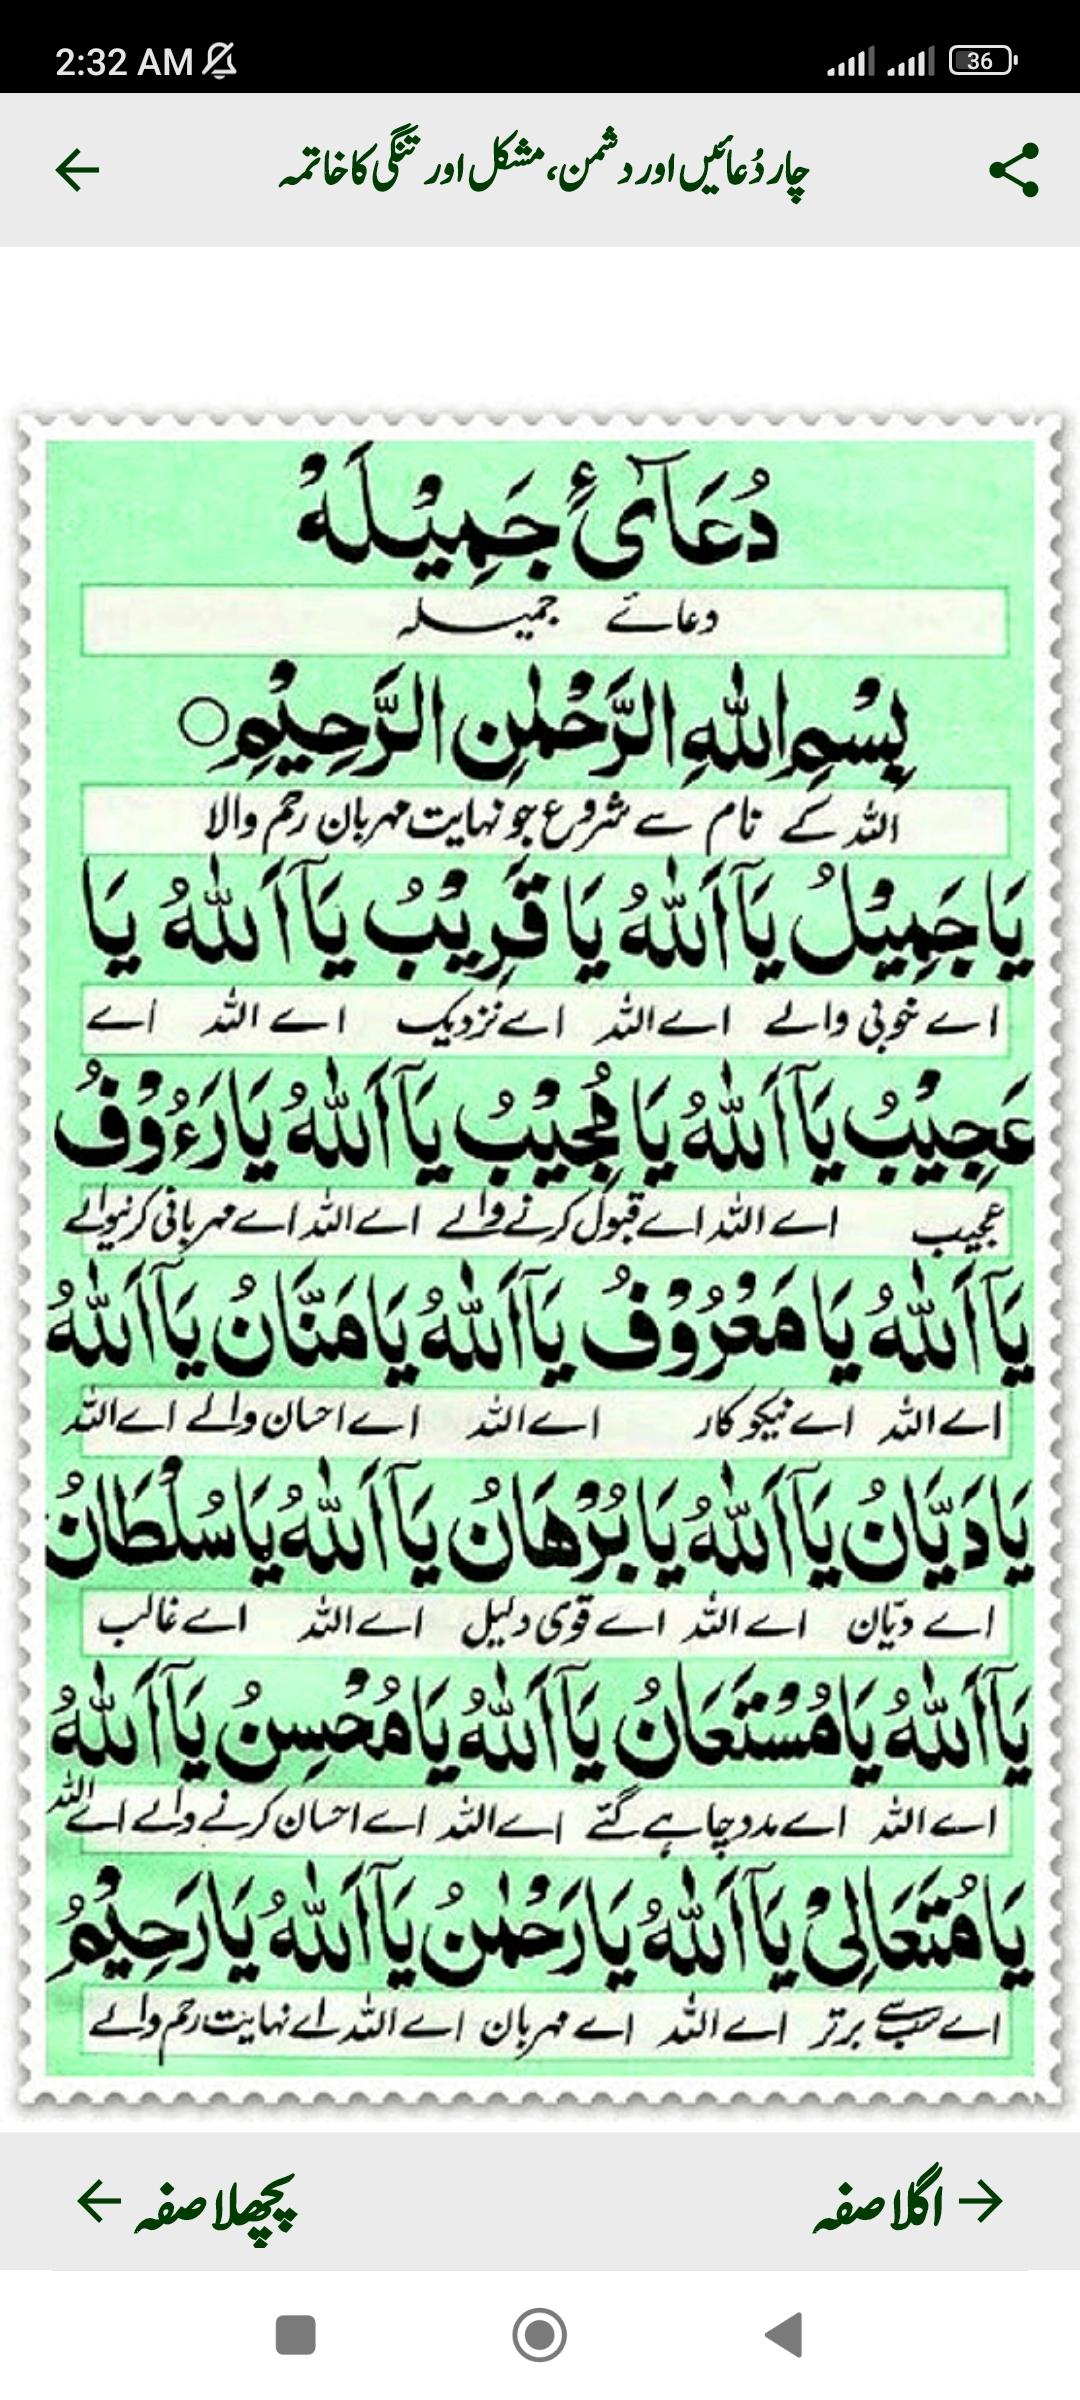 2:32 AM
36
چار دُعائیں اور دشمن، مشکل اور تنگی کا خاتمہ
دُعَآئِ جَمِیْلَهْ
دعائے جمیلہ
بِسْمِ اللهِ الرَّحْمٰنِ الرَّحِیْمِ○
اللہ کے نام سے شروع جو نہایت مہربان رحم والا
یَا جَمِیْلُ یَآ اَللهُ یَا قَرِیْبُ یَآ اَللهُ یَا
اے خوبی والے اے اللہ اے نزدیک اے اللہ اے
عَجِیْبُ یَآ اَللهُ یَا مُجِیْبُ یَآ اَللهُ یَا رَءُوْفُ
عجیب اے اللہ اے قبول کرنے والے اے اللہ اے مہربانی کرنیوالے
یَآ اَللهُ یَا مَعْرُوْفُ یَآ اَللهُ یَا مَنَّانُ یَآ اَللهُ
اے اللہ اے نیکو کار اے اللہ اے احسان والے اے اللہ
یَا دَیَّانُ یَآ اَللهُ یَا بُرْهَانُ یَآ اَللهُ یَا سُلْطَانُ
اے دیّان اے اللہ اے قوی دلیل اے اللہ اے غالب
یَآ اَللهُ یَا مُسْتَعَانُ یَآ اَللهُ یَا مُحْسِنُ یَآ اَللهُ
اے اللہ اے مدد چاہے گئے اے اللہ اے احسان کرنے والے اے اللہ
یَا مُتَعَالِیْ یَآ اَللهُ یَا رَحْمٰنُ یَآ اَللهُ یَا رَحِیْمُ
اے سب سے برتر اے اللہ اے مہربان اے اللہ اے نہایت رحم والے
اگلا صفہ
پچھلا صفہ